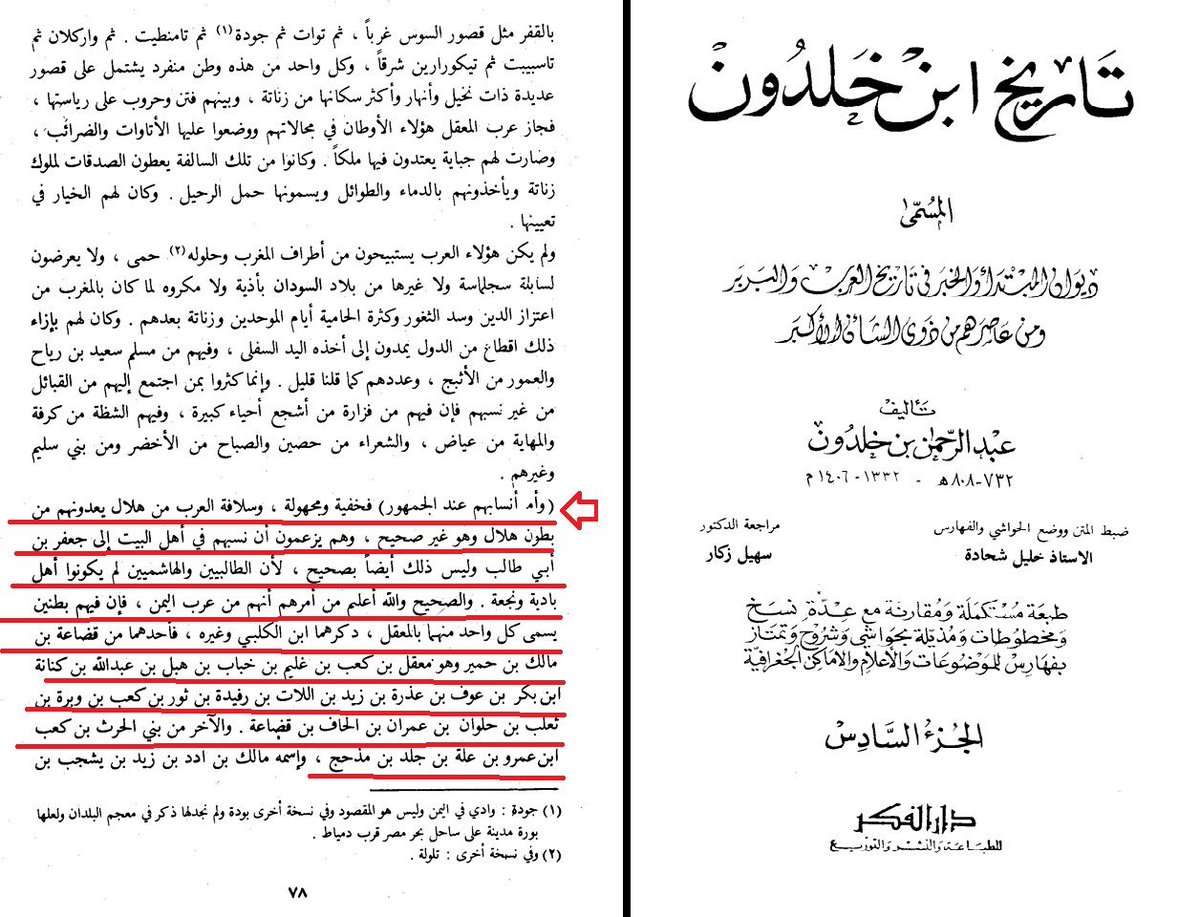 تاريخ ابن خلدون
المسمى
ديوان المبتدأ والخبر في تاريخ العرب والبربر
ومن عاصرهم من ذوي الشأن الأكبر
تأليف
عبد الرحمن بن خلدون
٧٣٢-٨٠٨ هـ - ١٣٣٢-١٤٠٦ م
ضبط المتن ووضع الحواشي والفهارس
الاستاذ خليل شحادة
مراجعة الدكتور
سهيل زكار
طبعة مستكملة ومقارنة مع عدة نسخ
ومخطوطات ومذيلة بحواشي وشروح وتمتاز
بفهارس للموضوعات والأعلام والأماكن الجغرافية
الجزء السادس
دار الفكر
للطباعة والنشر والتوزيع
بالقفر مثل قصور السوس غرباً ، ثم توات ثم جودة (١) ثم تامنطيت . ثم واركلان ثم
تاسبيبت ثم تيكورارين شرقاً ، وكل واحد من هذه وطن منفرد يشتمل على قصور
عديدة ذات نخيل وأنهار وأكثر سكانها من زناتة ، وبينهم فتن وحروب على رياستها ،
فجاز عرب المعقل هؤلاء الأوطان في مجالاتهم ووضعوا عليها الأتاوات والضرائب ،
وصارت لهم جباية يعتدون فيها ملكاً . وكانوا من تلك السالفة يعطون الصدقات لملوك
زناتة ويأخذونهم بالدماء والطوائل ويسمونها حمل الرحيل . وكان لهم الخيار في
تعيينها .
ولم يكن هؤلاء العرب يستبيحون من أطراف المغرب وحلوله (٢) حمى ، ولا يعرضون
لسابلة سجلماسة ولا غيرها من بلاد السودان بأذية ولا مكروه لما كان بالمغرب من
اعتزاز الدين وسد الثغور وكثرة الحامية أيام الموحدين وزناتة بعدهم . وكان لهم بإزاء
ذلك اقطاع من الدول يمدون إلى أخذه اليد السفلى ، وفيهم من مسلم سعيد بن رياح
والعمور من الأثبج ، وعددهم كما قلنا قليل . وإنما كثروا بمن اجتمع إليهم من القبائل
من غير نسبهم فإن فيهم من فزارة من أشجع أحياء كبيرة ، وفيهم الشظة من كرفة
والمهاية من عياض ، والشعراء من حصين والصباح من الأخضر ومن بني سليم
وغيرهم .
(وأم أنسابهم عند الجمهور) فخفية ومجهولة ، وسلافة العرب من هلال يعدونهم من
بطون هلال وهو غير صحيح ، وهم يزعمون أن نسبهم في أهل البيت إلى جعفر بن
أبي طالب وليس ذلك أيضاً بصحيح ، لأن الطالبيين والهاشميين لم يكونوا أهل
بادية ونجعة . والصحيح والله أعلم من أمرهم أنهم من عرب اليمن ، فإن فيهم بطنين
يسمى كل واحد منهما بالمعقل ، دكرهما ابن الكلبي وغيره ، فأحدهما من قضاعة بن
مالك بن حمير وهو معقل بن كعب بن غليم بن خباب بن هبل بن عبدالله بن كنانة
ابن بكر بن عوف بن عذرة بن زيد بن اللات بن رفيدة بن ثور بن كعب بن وبرة بن
ثعلب بن حلوان بن عمران بن الحاف بن قضاعة . والآخر من بني الحرث بن كعب
ابن عمرو بن علة بن جلد بن مذحج ، وإسمه مالك بن ادد بن زيد بن يشجب بن
(١) جودة : وادي في اليمن وليس هو المقصود وفي نسخة أخرى بودة ولم نجدلها ذكر في معجم البلدان ولعلها
بورة مدينة على ساحل بحر مصر قرب دمياط .
(٢) وفي نسخة أخرى : تلولة .
٧٨